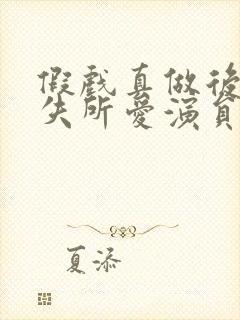 假戲真做後
失所愛演員
夏添